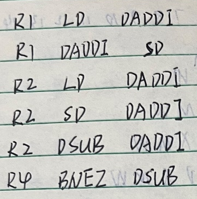 R1 LD DADDI
R1 DADDI SD
R2 LD DADDI
R2 SD DADDI
R2 DSUB DADDI
R4 BNEZ DSUB